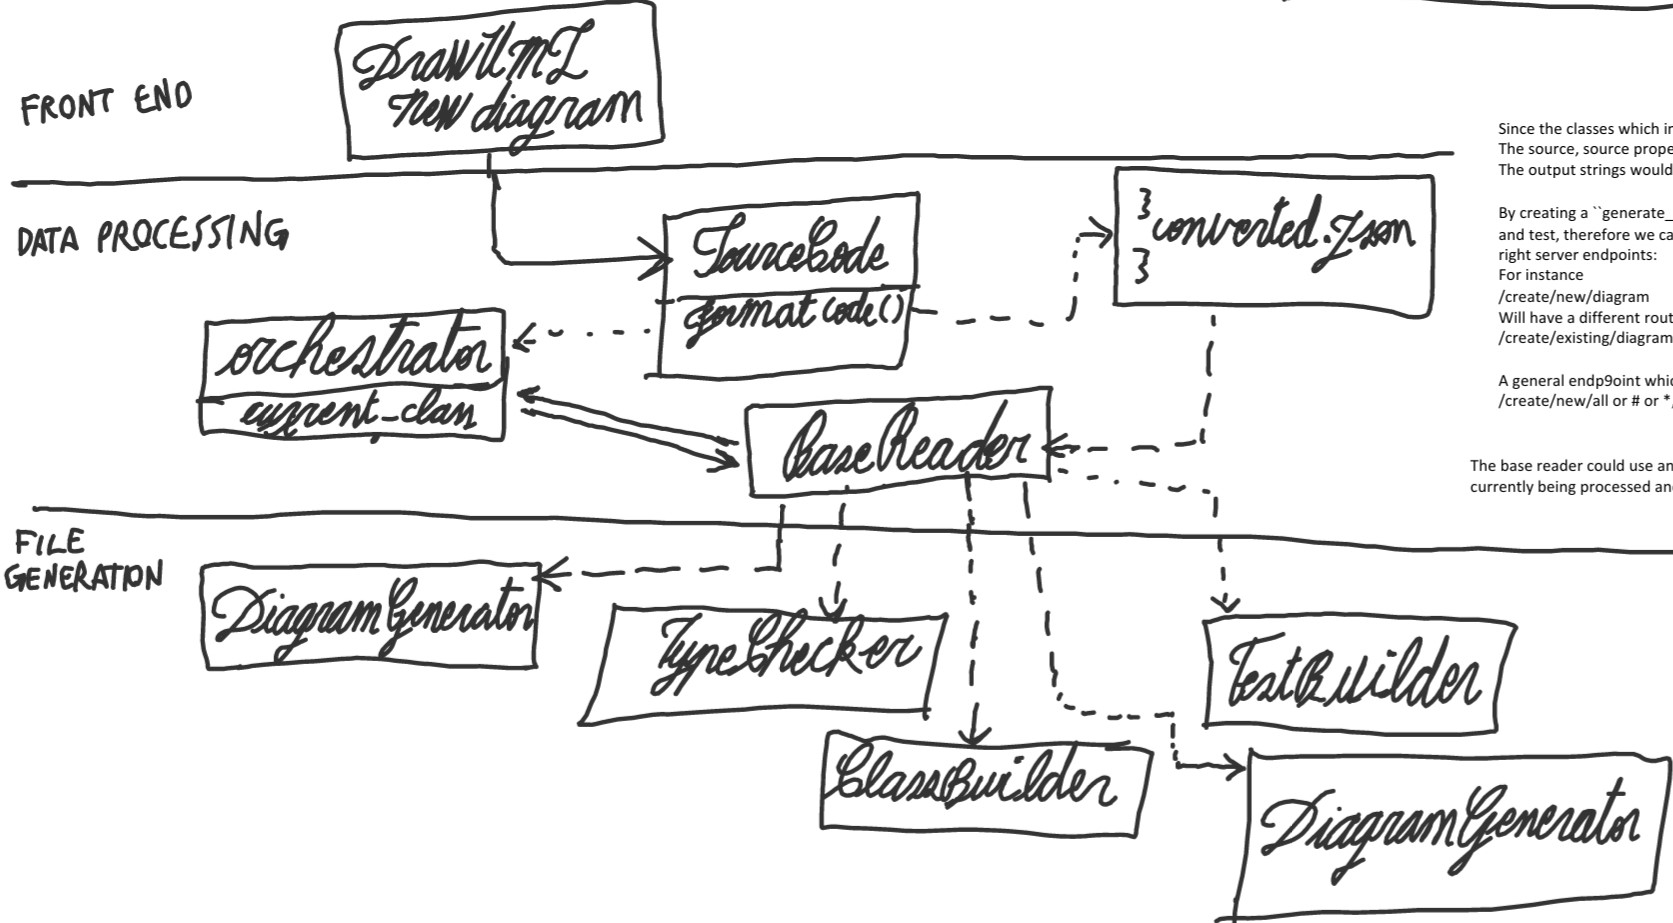 DrawUML
new diagram
FRONT END
DATA PROCESSING
SourceCode
format code()
}
converted.json
}
orchestrator
current_class
BaseReader
FILE
GENERATION
DiagramGenerator
TypeChecker
ClassBuilder
TestBuilder
DiagramGenerator
Since the classes which i
The source, source prope
The output strings would
By creating a ``generate_
and test, therefore we ca
right server endpoints:
For instance
/create/new/diagram
Will have a different rout
/create/existing/diagram
A general endp9oint whic
/create/new/all or # or *,
The base reader could use an
currently being processed and